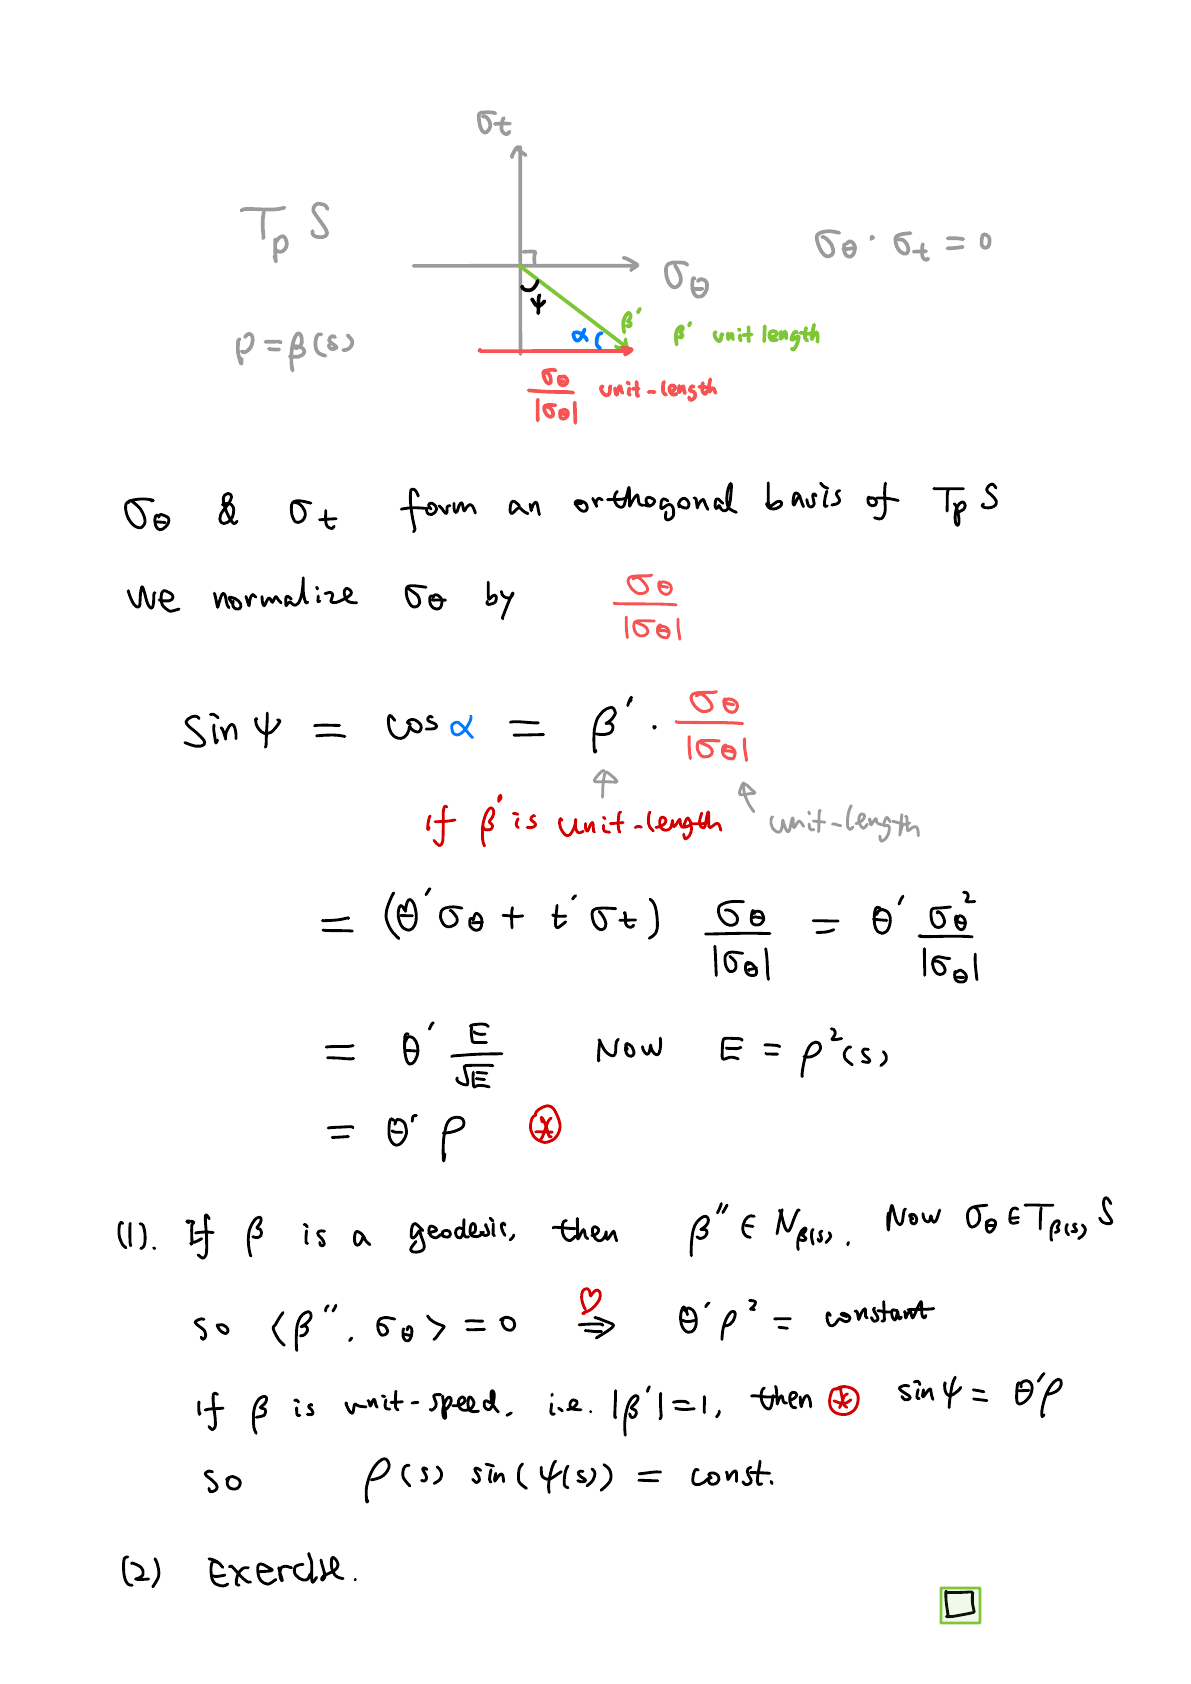 σt
T_p S
σθ · σt = 0
σθ
ψ
β′
α
β′ unit length
p = β(s)
σθ/|σθ| unit-length
σθ & σt form an orthogonal basis of T_p S
We normalize σθ by σθ/|σθ|
sin ψ = cos α = β′ · σθ/|σθ|
if β′ is unit-length unit-length
= (θ′σθ + t′σt) σθ/|σθ| = θ′ σθ²/|σθ|
= θ′ E/√E Now E = ρ²(s)
= θ′ρ ⊛
(1). If β is a geodesic, then β″ ∈ N_β(s). Now σθ ∈ T_β(s) S
so ⟨β″, σθ⟩ = 0 ♡⇒ θ′ρ² = constant
If β is unit-speed, i.e. |β′|=1, then ⊛ sin ψ = θ′ρ
so ρ(s) sin(ψ(s)) = const.
(2) Exercise.
□